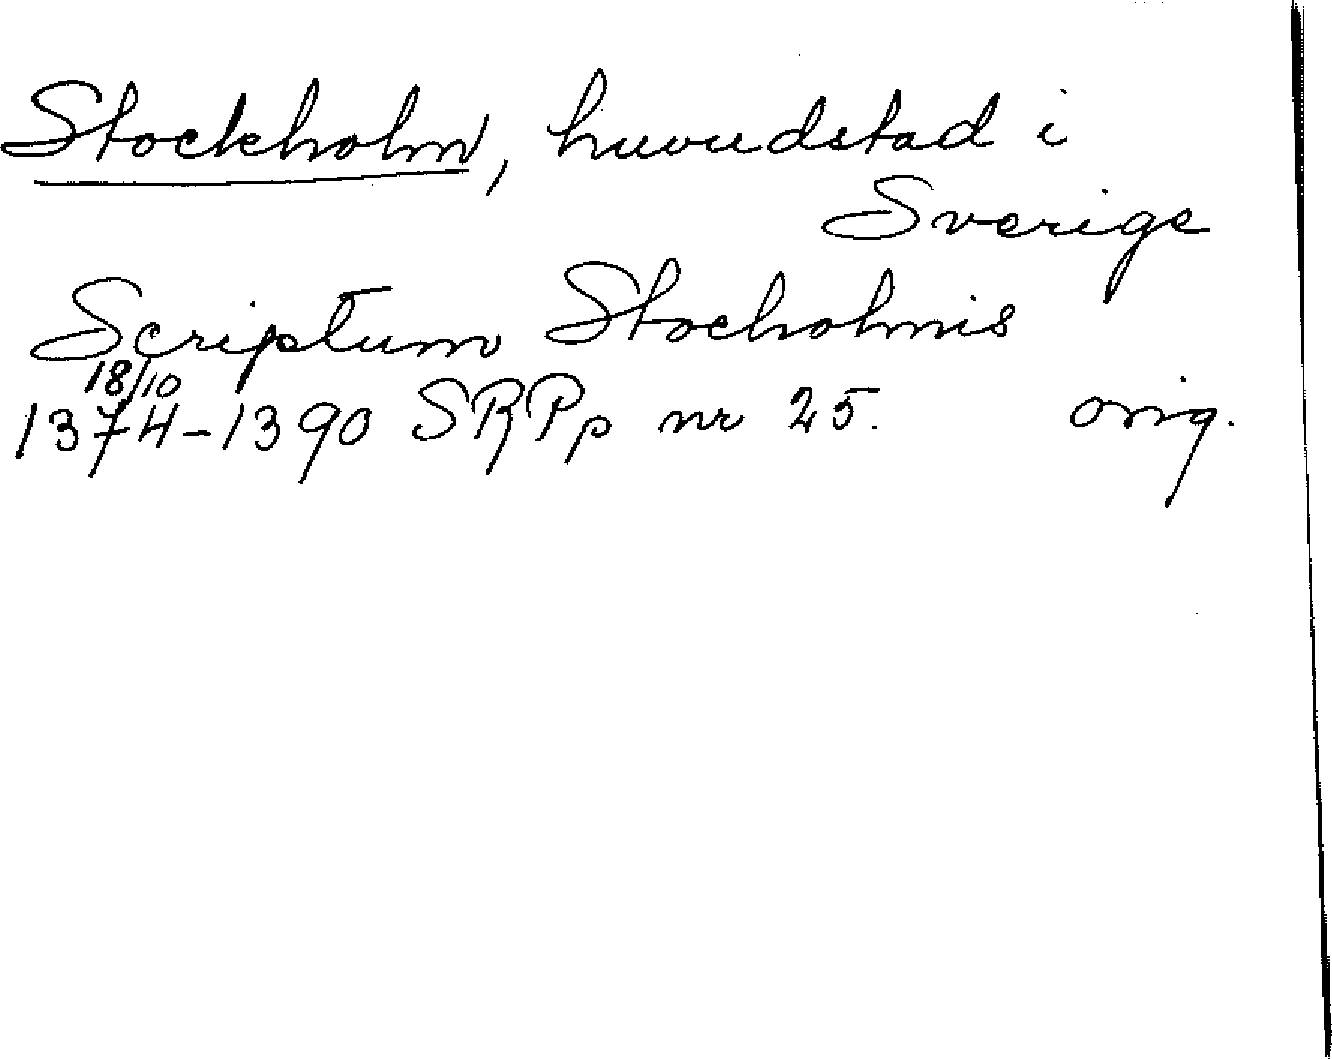 Stockholm, huvudstad i
Sverige
Scriptum Stocholmis
18/10
1374-1390 SRPp nr 25. orig.